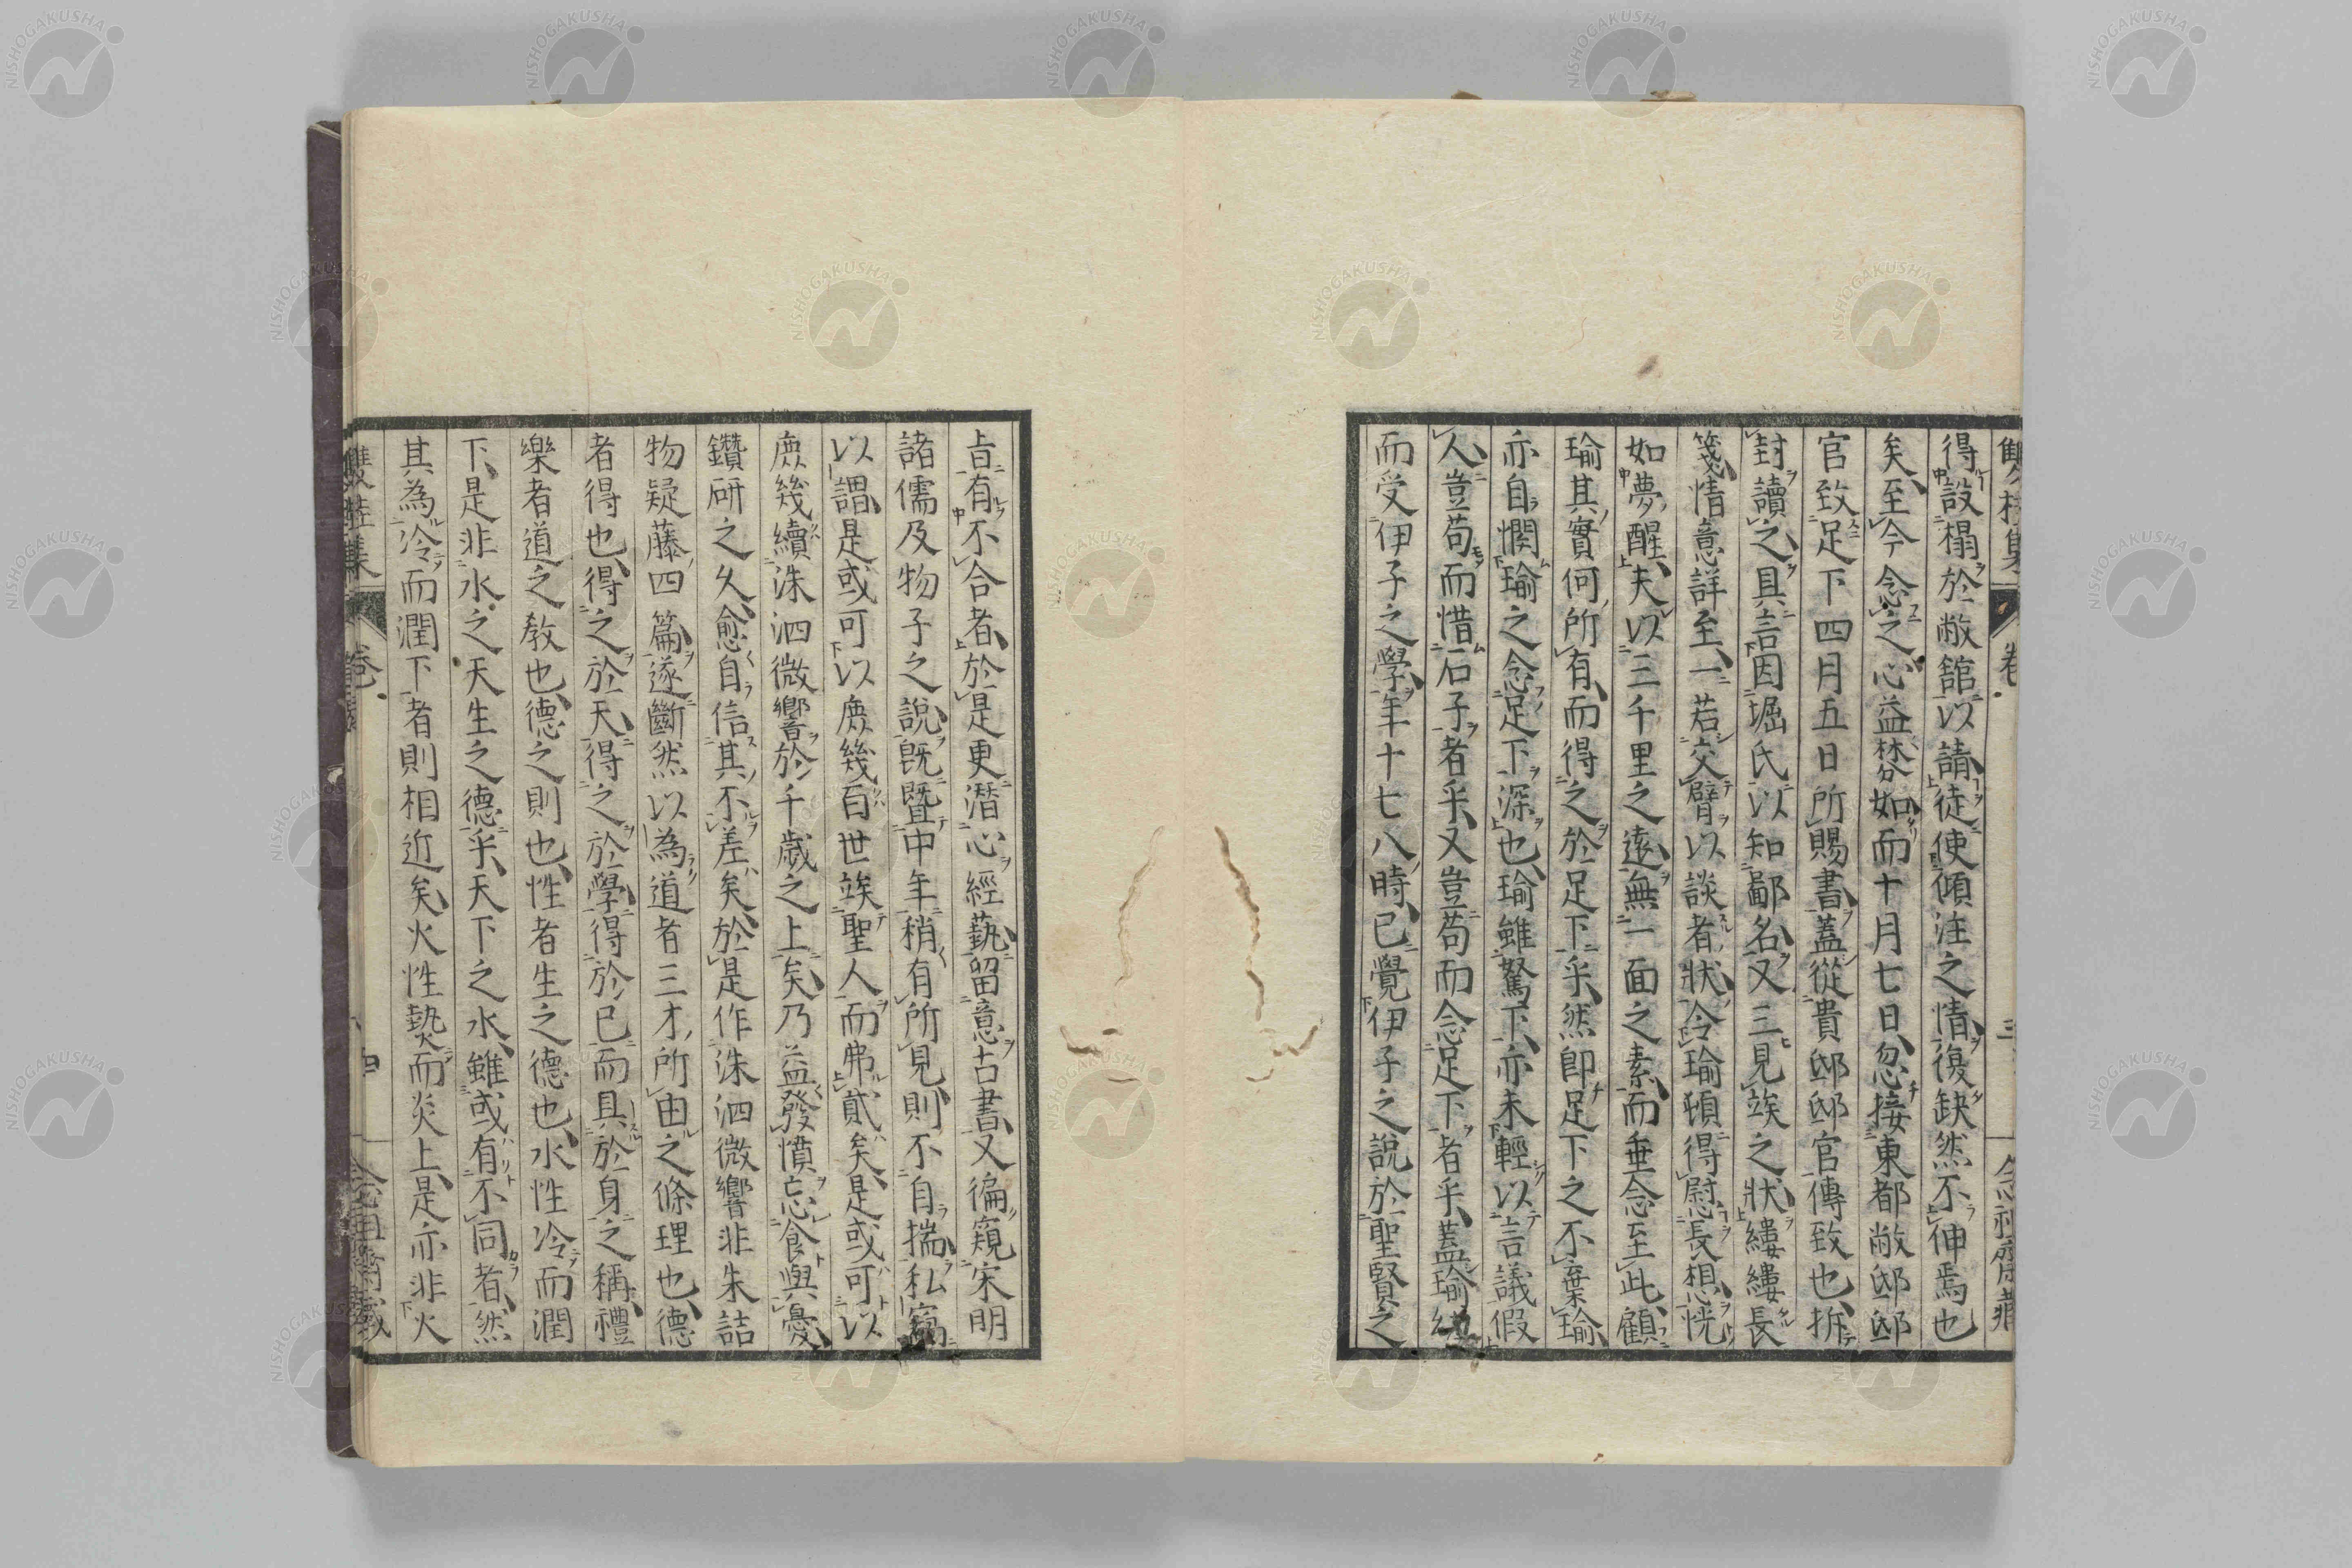 得設榻於敝舘以請徒使傾注之情復缺然不伸焉也
矣至今念之心益棼如而十月七日忽接東都敝邸邸
官致足下四月五日所賜書蓋從貴邸邸官傳致也拆
封讀之具言因堀氏以知鄙名又三見竢之狀縷縷長
箋情意詳至一若交臂以談者狀令瑜頓得慰長想恍
如夢醒夫以三千里之遠無一面之素而垂念至此顧
瑜其實何所有而得之於足下乎然即足下之不棄瑜
亦自憫瑜之念足下深也瑜雖駑下亦未輕以言議假
人豈苟而惜石子者乎又豈苟而念足下者乎蓋瑜
而受伊子之學年十七八時已覺伊子之說於聖賢之
旨有不合者於是更潛心經藝留意古書又徧窺宋明
諸儒及物子之說既暨中年稍有所見則不自揣私竊
以謂是或可以庶幾百世竢聖人而弗貳矣是或可以
庶幾續洙泗微響於千歲之上矣乃益發憤忘食與憂
鑽研之久愈自信其不差矣於是作洙泗微響非朱詰
物疑藤四篇遂斷然以為道者三才所由之條理也德
者得也得之於天得之於學得於己而具於身之稱禮
樂者道之教也德之則也性者生之德也水性冷而潤
下是非水之天生之德乎天下之水雖或有不同者然
其為冷而潤下者則相近矣火性熱而炎上是亦非火